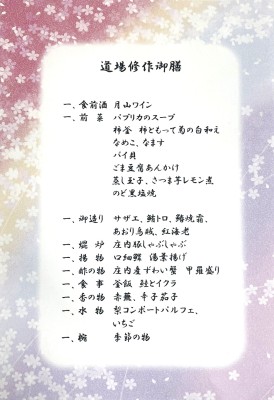 道場修作御膳
一、食前酒 月山ワイン
一、前菜 パプリカのスープ
柿釜 柿ともって菊の白和え
なめこ、なます
バイ貝
ごま豆腐あんかけ
蒸し玉子、さつま芋レモン煮
のど黒塩焼
一、御造り サザエ、鮪トロ、鰆焼霜、
あおり烏賊、紅海老
一、焜炉 庄内豚しゃぶしゃぶ
一、揚物 口細鰈 湯葉揚げ
一、酢の物 庄内産ずわい蟹 甲羅盛り
一、食事 釜飯 鮭とイクラ
一、香の物 赤蕪、辛子茄子
一、水物 梨コンポートパルフェ、
いちご
一、椀 季節の物